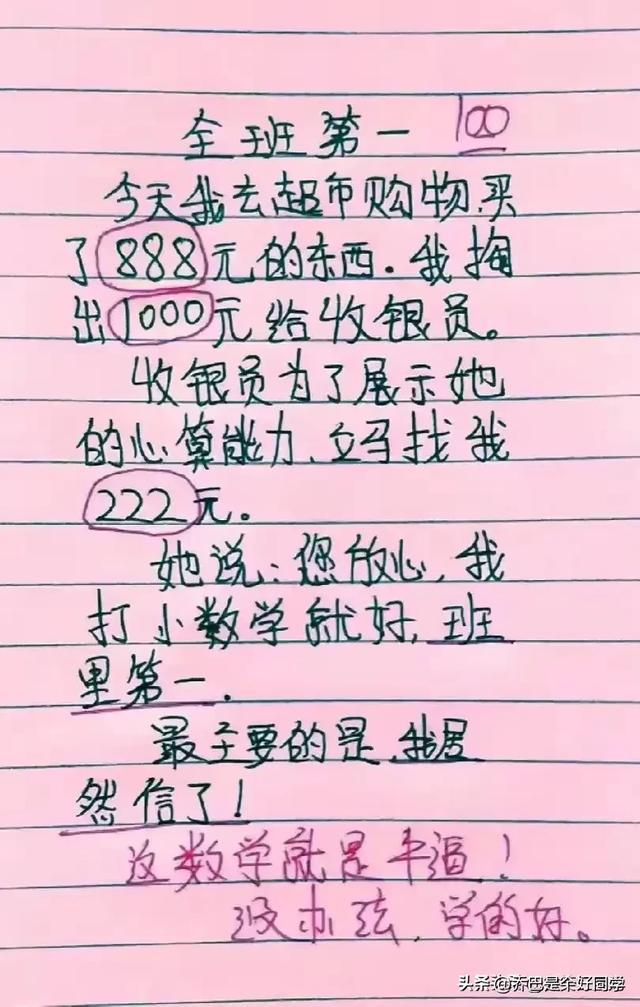 全班第一 100
今天我去超市购物,买
了888元的东西.我掏
出1000元给收银员。
收银员为了展示她
的心算能力,立马找我
222元。
她说:您放心,我
打小数学就好,班
里第一.
最主要的是,我居
然信了!
这数学就是牛逼!
没办法,学的好。
头条@乔巴是个好同学